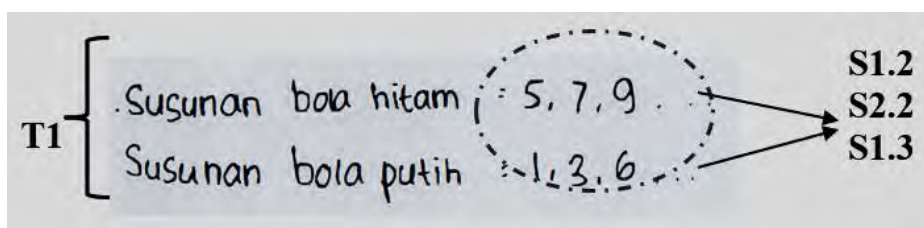 T1
.Susunan bola hitam : 5, 7, 9 . . .
Susunan bola putih : 1, 3, 6 . . .
S1.2
S2.2
S1.3